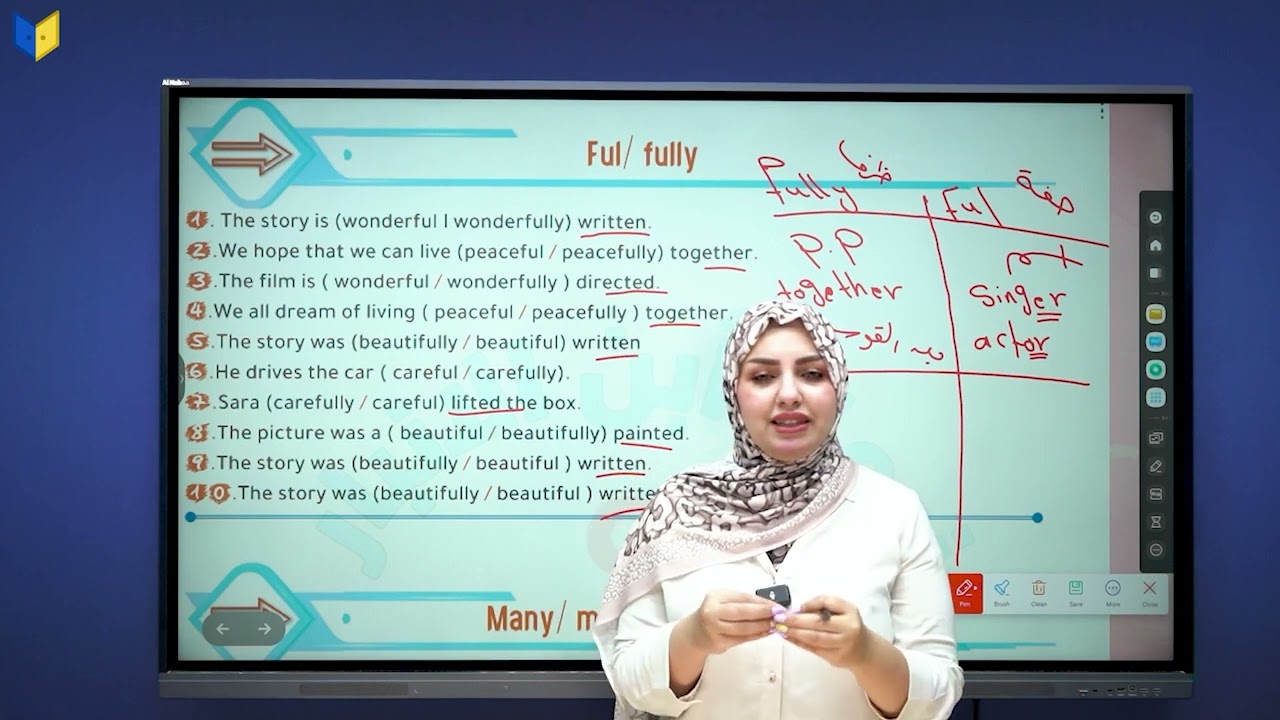 Ful/ fully
1. The story is (wonderful l wonderfully) written.
2.We hope that we can live (peaceful / peacefully) together.
3.The film is ( wonderful / wonderfully ) directed.
4.We all dream of living ( peaceful / peacefully ) together.
5.The story was (beautifully / beautiful) written
6.He drives the car ( careful / carefully).
7.Sara (carefully / careful) lifted the box.
8.The picture was a ( beautiful / beautifully) painted.
9.The story was (beautifully / beautiful ) written.
10.The story was (beautifully / beautiful ) writte
Many/ m
fully
P.P
together
صفة
Ful
اسم
singer
actor
Pen Brush Clean Save More Close